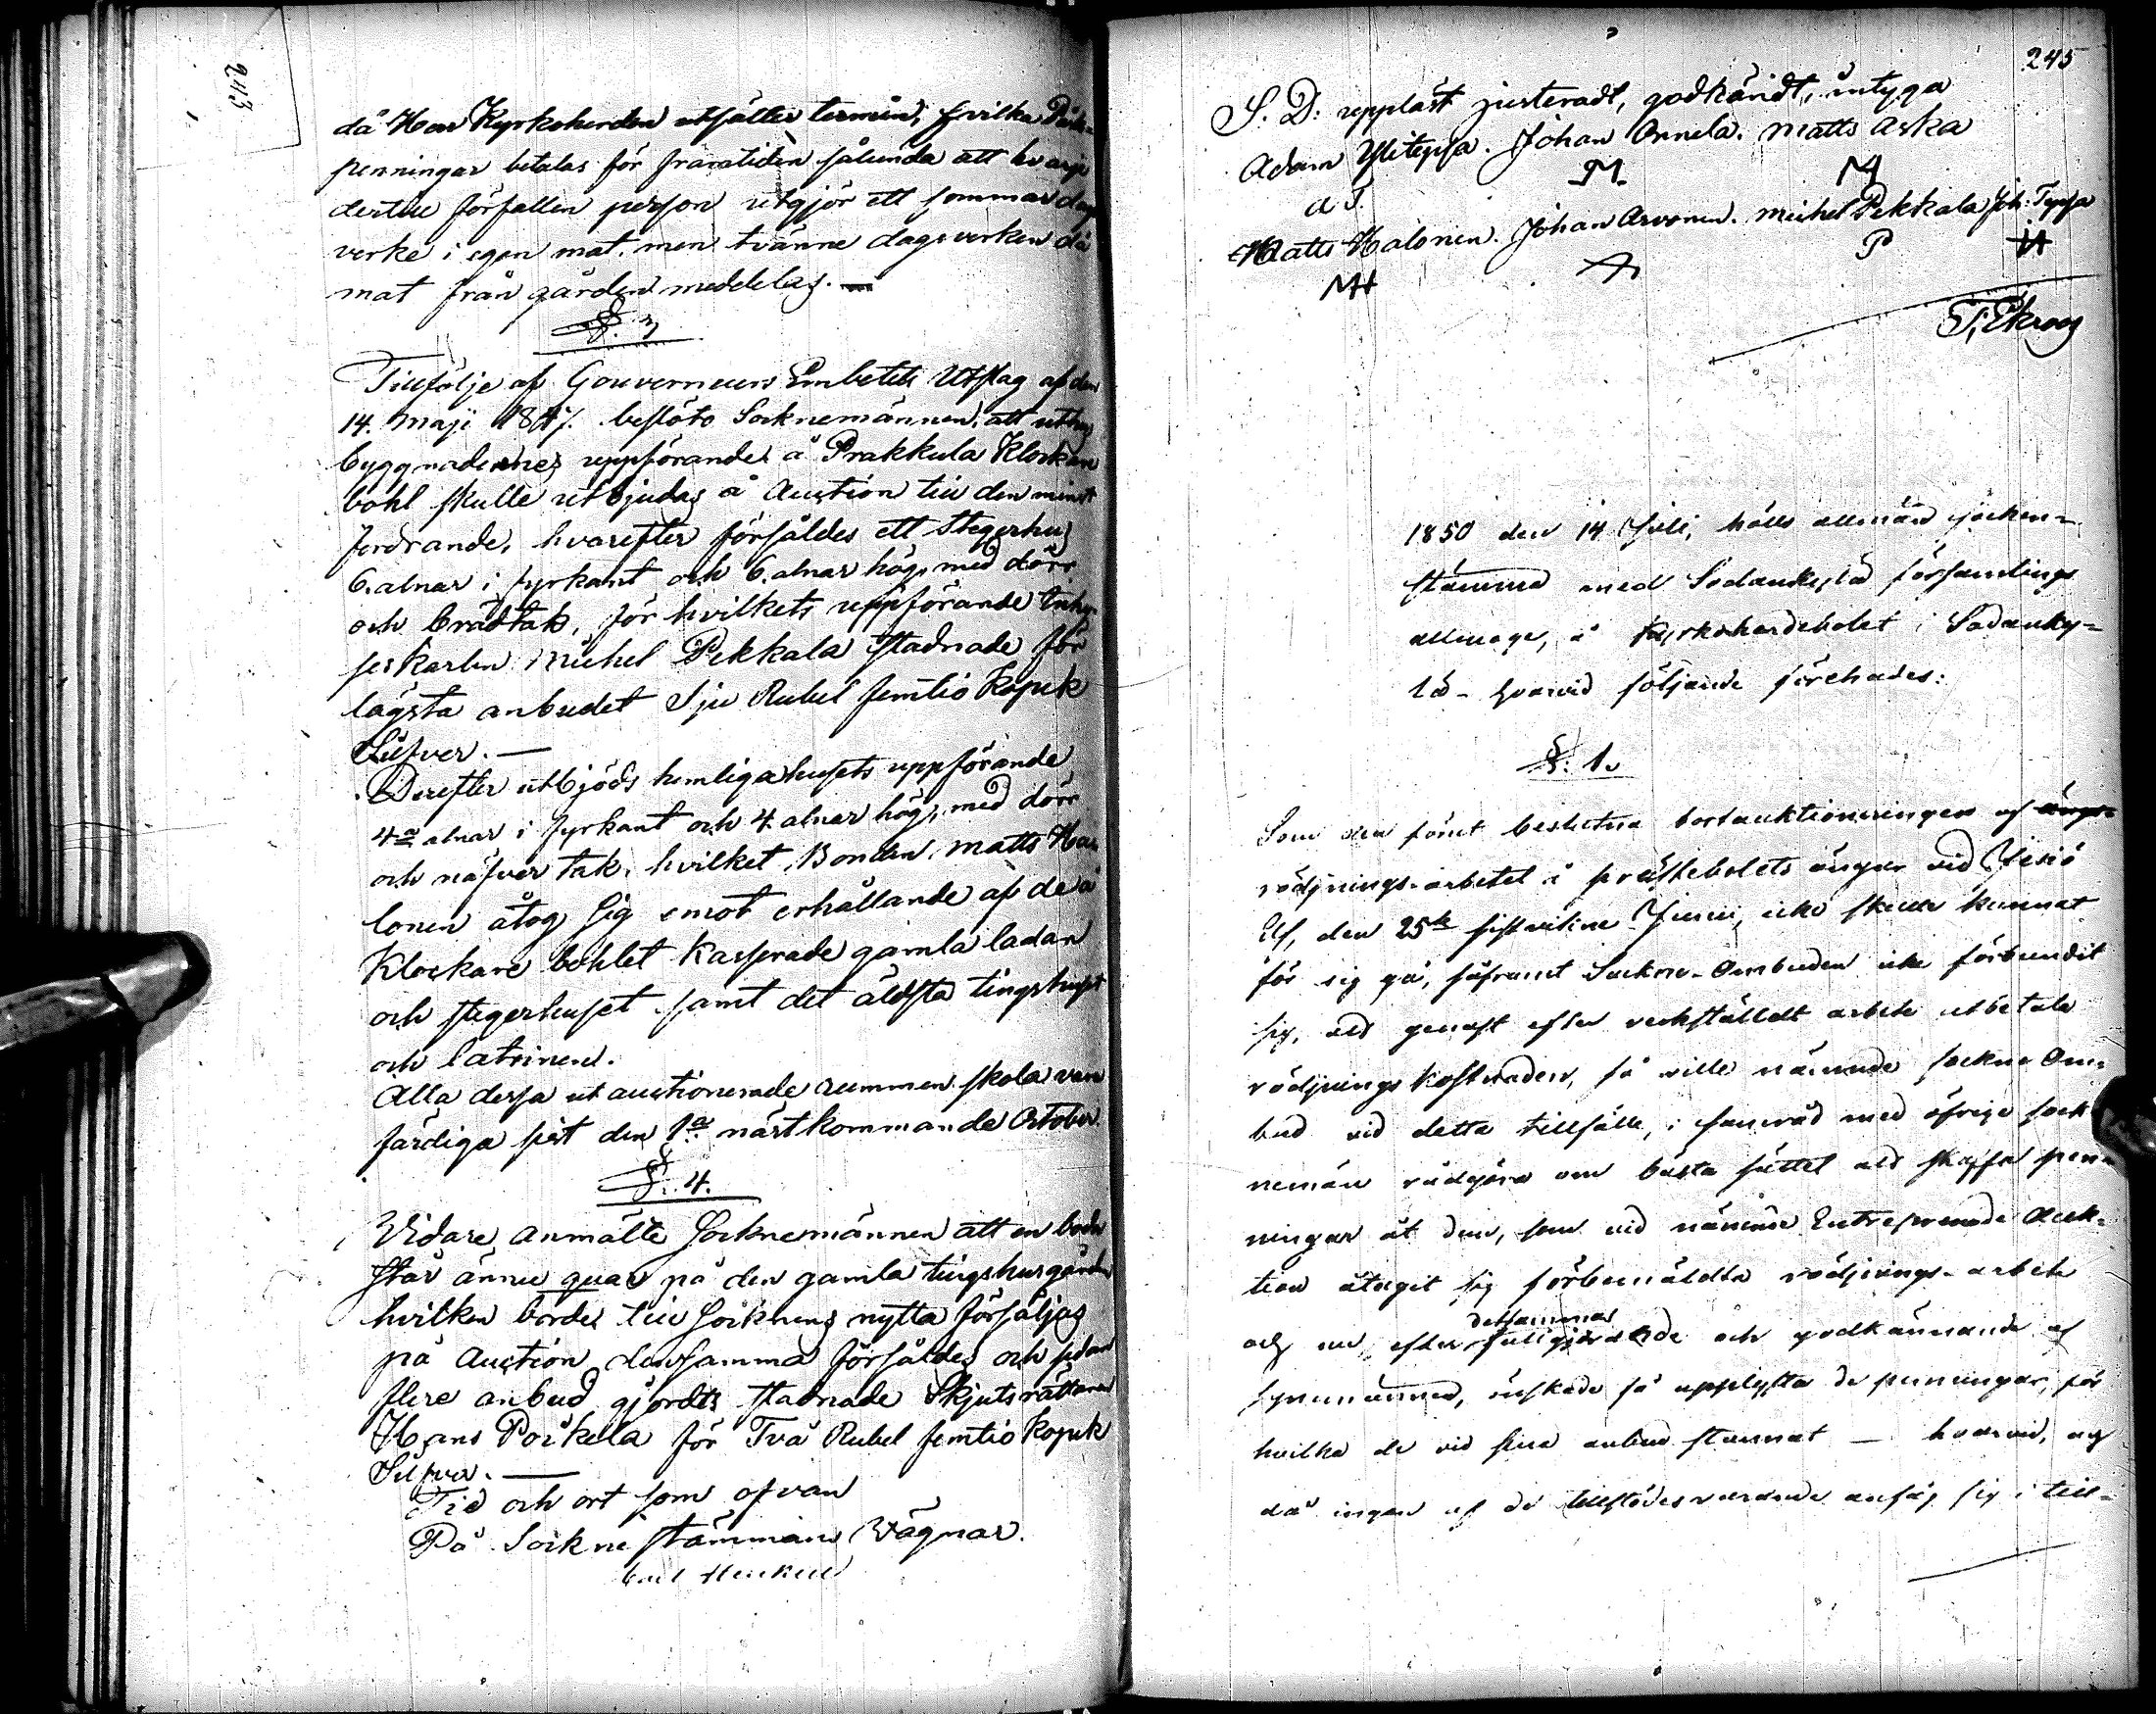 243
då Herr Kyrkoherden utsätter termin, hvilka Påsk-
penningar betalas för framtiden sålunda att hvarje
dertill förfallen person utgjör ett sommar dags
verke i egen mat, men tvänne dagsverken då
mat från gården meddelas. —
§. 3
Tillfölje af Gouverneurs Embetets Utslag af den
14. Maji 1847. beslöto Socknemännen, att uthus
byggnadernes uppförande å Prakkula Klockare
bohl skulle utbjudas å Auction till den minst
fordrande, hvarefter försåldes ett Stegerhus
6. alnar i fyrkant och 6. alnar hög, med dörr
och brädtak, för hvilkets uppförande Inhy-
seskarlen Michel Pekkala stadnade för
lägsta anbudet Sju Rubel femtio Kopek
Silfver. —
Derefter utbjöds hemligahusets uppförande
4ra alnar i fyrkant och 4. alnar hög, med dörr
och näfver tak, hvilket, Bonden, Matts Ha-
lonen åtog sig emot erhållande af de å
Klockare bohlet Kasserade gamla ladan
och stegerhuset samt det äldsta tingshuset
och latrinen.
Alla dessa ut auctionerade rummen skola vara
färdiga sist den 1a nästkommande October
§. 4.
Vidare anmälte Socknemännen att en bod
står ännu quar på den gamla tingshusgården
hvilken borde till Socknens nytta försäljas
på Auction densamma försåldes och sedan
flere anbud gjordts stadnade Skjutsrättaren
Hans Poikela för Två Rubel femtio Kopek
Silfver. —
Tid och ort som ofvan
På Sockne stämmans Vägnar.
Carl Heickell
245
S. D. uppläst justeradt, godkändt, intyga
Adam Ylitepsa. Johan Onnela. Matts Aska
A T. M. M
Matts Halonen. Johan Arvonen. Michel Pekkala Joh: Tepsa
MH A P H
1850 den 14 Juli, hölls allmän socken-
stämma med Sodankylä församlings
allmoge, å Kyrkoherdebolet i Sodanky-
lä – hvarvid följande förehades:
§. 1.
Som den förut beslutna bortauktioneringen af ängs-
rödjnings-arbetet å prästebolets ängar vid Jesiö
Elf, den 25te sistvikne Junii, icke skulle kunnat
för sig gå, såframt Sockne-Ombuden icke förbundit
sig, att genast efter verkställdt arbete utbetala
rödjnings kostnaden, så ville nämnde sockne Om-
bud vid detta tillfälle, i samråd med öfrige sock-
nemän rådgöra om bästa sättet att skaffa pen-
ningar åt dem, som vid nämnde Entreprenade Auk-
tion åtagit sig förbemäldta rödjnings-arbete
och nu, efter detsammas fullgjörande och godkännande af
synemännen, önskade få upplyfta de penningar, för
hvilka de vid sina anbud stannat — hvarvid, och
då ingen af de tillstädesvarande ansåg sig i till-